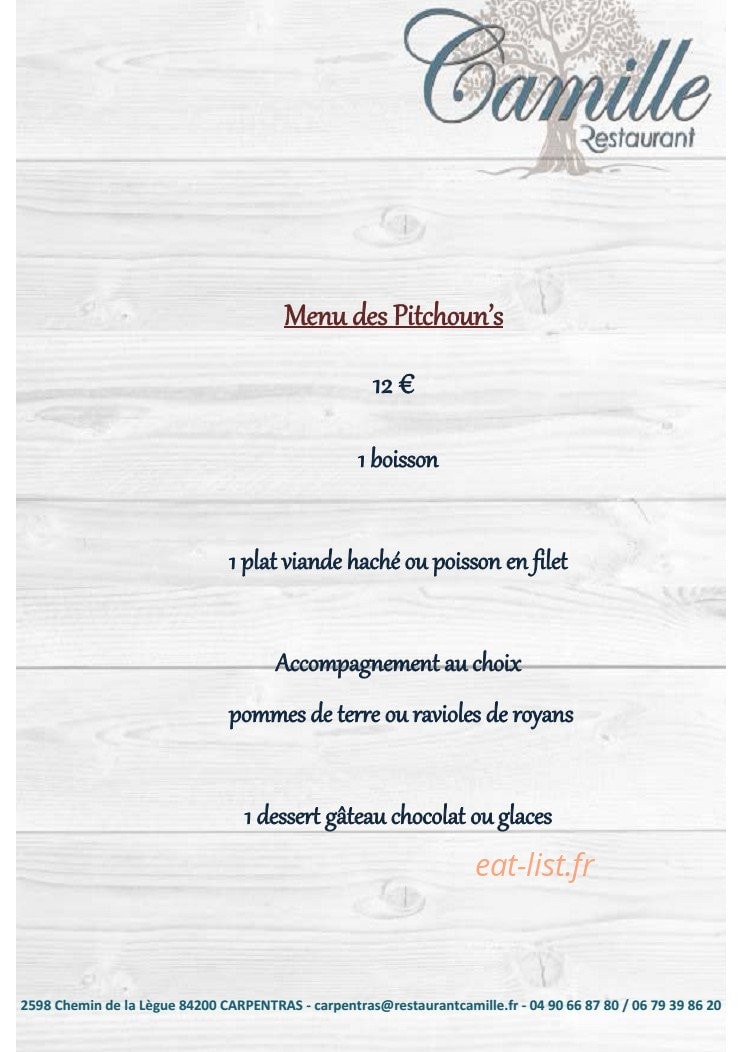 Camille
Restaurant
Menu des Pitchoun's
12 €
1 boisson
1 plat viande haché ou poisson en filet
Accompagnement au choix
pommes de terre ou ravioles de royans
1 dessert gâteau chocolat ou glaces
eat-list.fr
2598 Chemin de la Lègue 84200 CARPENTRAS - carpentras@restaurantcamille.fr - 04 90 66 87 80 / 06 79 39 86 20